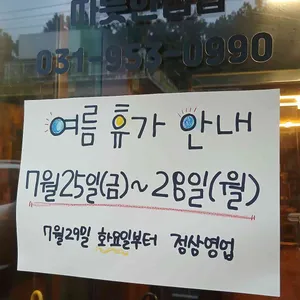 따뜻한밥집
031-953-0990
여름 휴가 안내
7월25일(금)~28일(월)
7월29일 화요일부터 정상영업